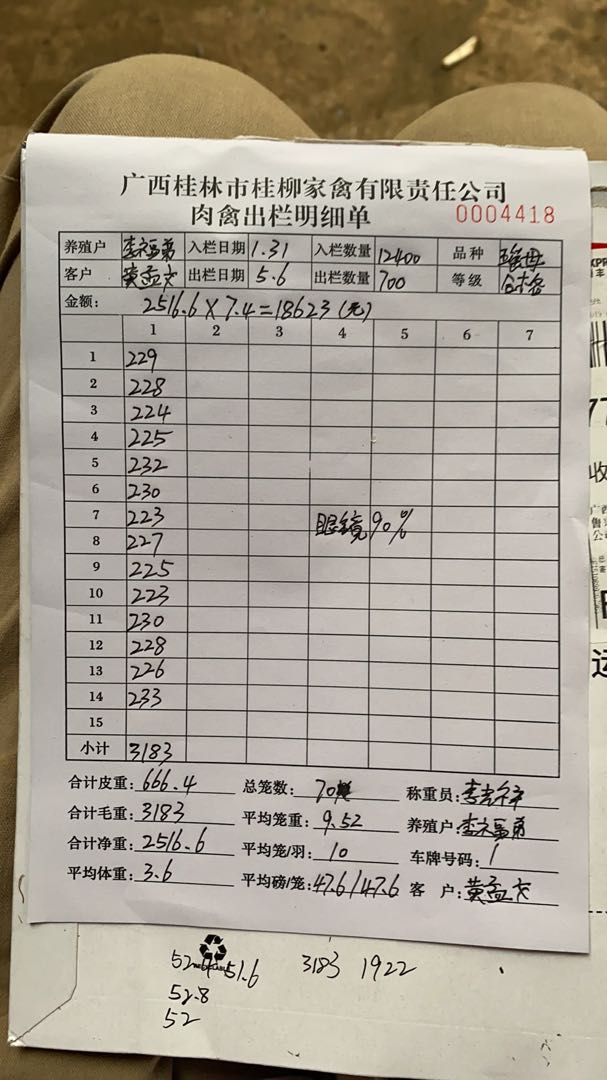 广西桂林市桂柳家禽有限责任公司
肉禽出栏明细单 0004418
养殖户 李福弟 入栏日期 1.31 入栏数量 12400 品种
客户 黄孟文 出栏日期 5.6 出栏数量 700 等级 合格
金额: 2516.6×7.4=18623(元)
1 2 3 4 5 6 7
1 229
2 228
3 224
4 225
5 232
6 230
7 223 眼镜90%
8 227
9 225
10 223
11 230
12 228
13 226
14 233
15
小计 3183
合计皮重: 666.4 总笼数: 70 称重员:
合计毛重: 3183 平均笼重: 9.52 养殖户: 李福弟
合计净重: 2516.6 平均笼/羽: 10 车牌号码: 1
平均体重: 3.6 平均磅/笼: 47.6/47.6 客户: 黄孟文
52.4 51.6 3183 1922
52.8
52